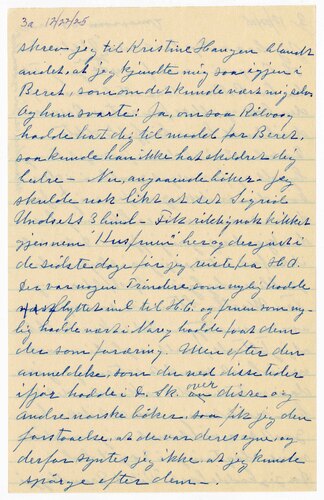 3a 12/22/25
skrev jeg til Kristine Haugen blandt
andet, at jeg kjendte mig saa igjen i
Beret, som om det kunde vært mig selv.
Og hun svarte: Ja, om saa Rölvaag
hadde hat dig til model for Beret,
saa kunde han ikke hat skildret dig
bedre. – Nu, angaaende bøker. – Jeg
skulde nok likt at set Sigrid
Undsets 3 bind. – Fik rigtignok kikket
gjennem "Husfruen" her og der just i
de sidste dage før jeg reiste fra H.C.
Der var nogen Trøndere som nylig hadde
flyttet ind til H.C. og fruen som ny-
lig hadde vært i Norge hadde faat dem
der som foræring. Men efter den
anmeldelse, som du ned disse tider
ifjor hadde i D. Sk. over disse og
andre norske bøker, saa fik jeg den
forstaaelse, at de var deres egne, og
derfor syntes jeg ikke, at jeg kunde
spørge efter dem –.